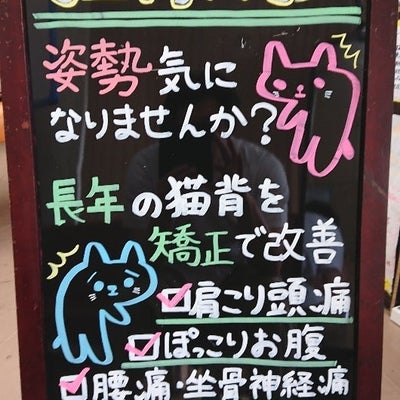 姿勢気に
なりませんか?
長年の猫背を
矯正で改善
肩こり頭痛
ぽっこりお腹
腰痛・坐骨神経痛